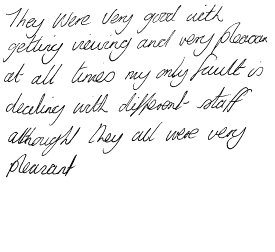 They were very good with
getting viewing and very pleasan
at all times my only fault is
dealing with different staff
althought they all were very
pleasant